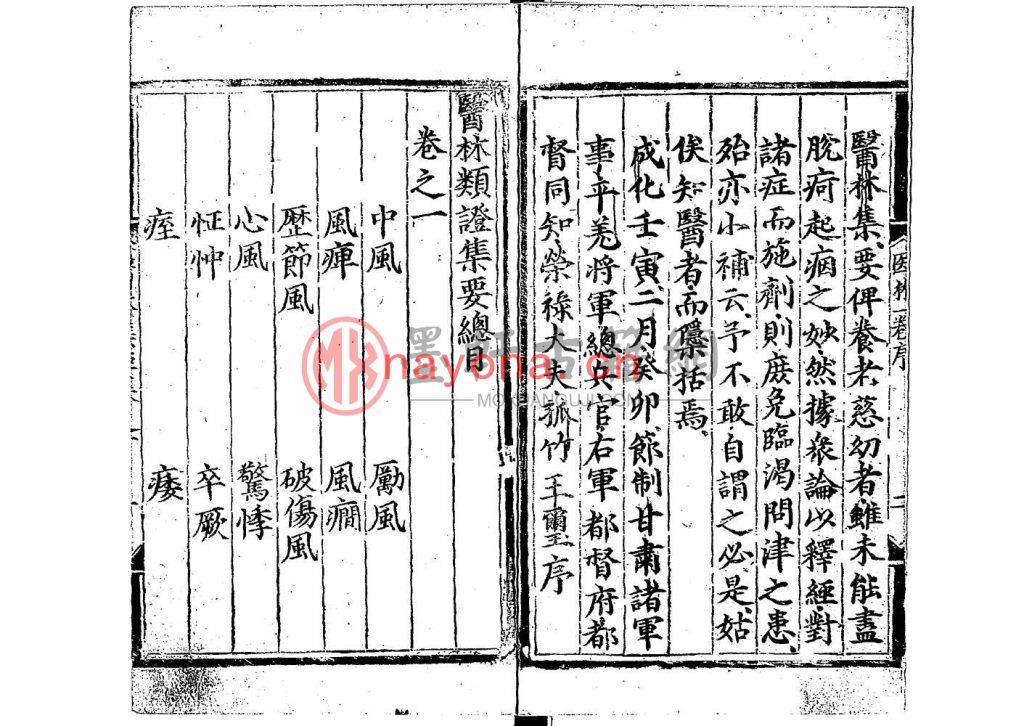 醫林集要俾養老慈幼者雖未能盡
脫疴起痼之妙然據衆論以釋經對
諸症而施劑則庶免臨渴問津之患
殆亦小補云予不敢自謂之必是姑
俟知醫者而隱括焉
成化壬寅二月癸卯節制甘肅諸軍
事平羌將軍總兵官右軍都督府都
督同知榮祿大夫孤竹王璽序
醫林類證集要總目
卷之一
中風 厲風
風痺 風癇
歷節風 破傷風
心風 驚悸
怔忡 卒厥
痓 痿
医林卷序
二
墨香古籍網
nayona.cn
MOXIANGUJI.COM